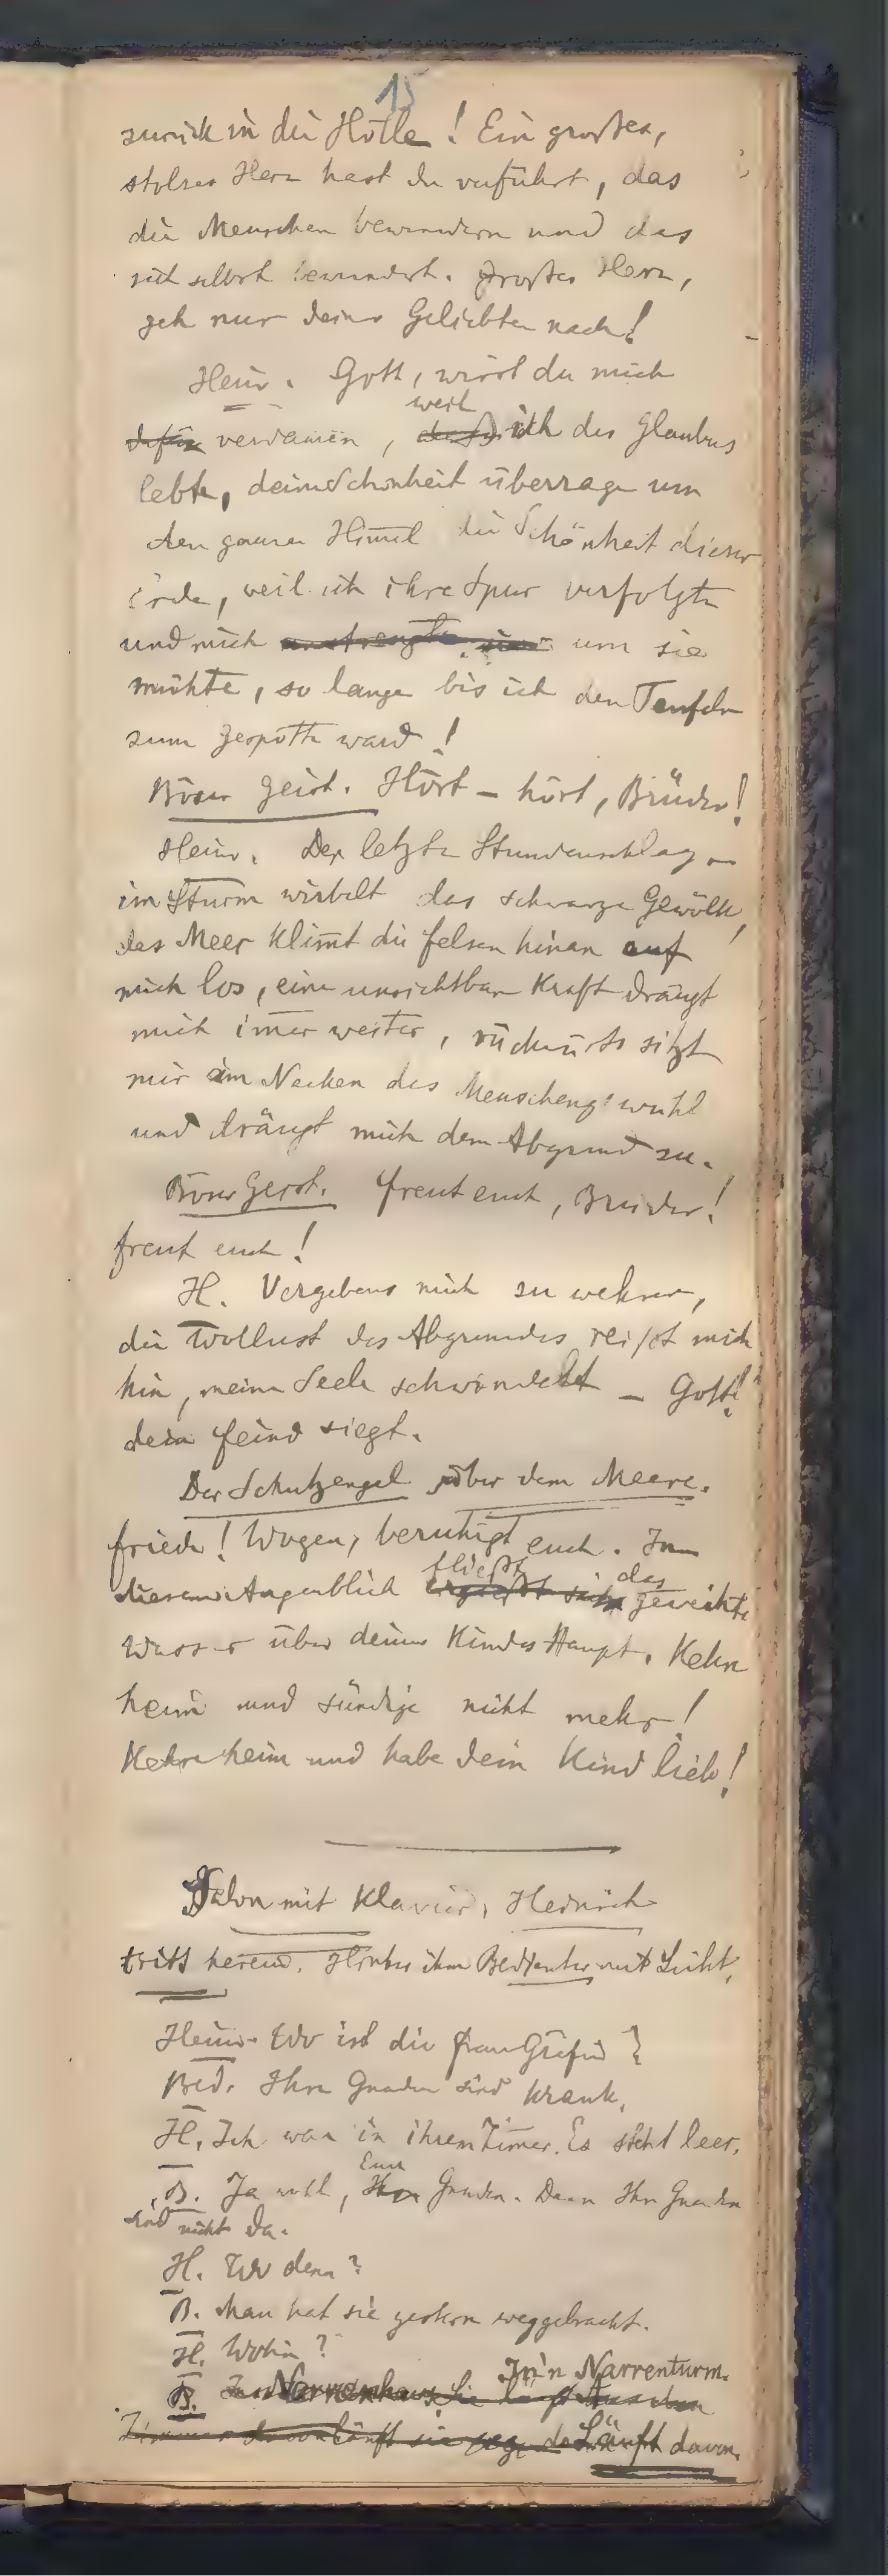 15
zurück in die Hölle! Ein großes,
stolzes Herz hast du verführt, das
die Menschen bewundern und das
sich selbst bewundert. Großes Herz,
geh nur deiner Geliebten nach!
Heinr. Gott, wirst du mich
weil
dafür verdam̅en, daß ich des Glaubens
lebte, deine Schönheit überrage um
den ganzen Him̅el die Schönheit dieser
Erde, weil ich ihre Spur verfolgte
und mich anstrengte um sie
mühte, so lange bis ich den Teufeln
zum Gespötte ward!
Böser Geist. Hört – hört, Brüder!
Heinr. Der letzte Stundenschlag –
im Sturm wirbelt das schwarze Gewölk,
das Meer klim̅t die Felsen hinan auf
mich los, eine unsichtbare Kraft drängt
mich im̅er weiter, rückwärts sitzt
mir im Nacken das Menschengewühl
und drängt mich dem Abgrund zu.
Böser Geist. Freut euch, Brüder!
freut euch!
H. Vergebens mich zu wehren,
die Wollust des Abgrundes reißt mich
hin, meine Seele schwindelt – Gott!
dein Feind siegt.
Der Schutzengel über dem Meere.
Friede! Wogen, beruhigt euch. In
fließt das
diesem Augenblick ergießt sich geweihte
Wasser über deines Kindes Haupt. Kehre
heim und sündige nicht mehr!
Kehre heim und habe dein Kind lieb!
Salon mit Klavier, Heinrich
tritt herein. Hinter ihm Bedienter mit Licht.
Heinr. Wo ist die Frau Gräfin?
Bed. Ihre Gnaden sind krank.
H. Ich war in ihrem Zim̅er. Es steht leer.
Euer
B. Ja wohl, Ihre Gnaden. Denn Ihre Gnaden
sind nicht da.
H. Wo denn?
B. Man hat sie gestern weggebracht.
H. Wohin?
In'n Narrenturm.
B. Ins Narrenhaus. Sie
Läuft davon.